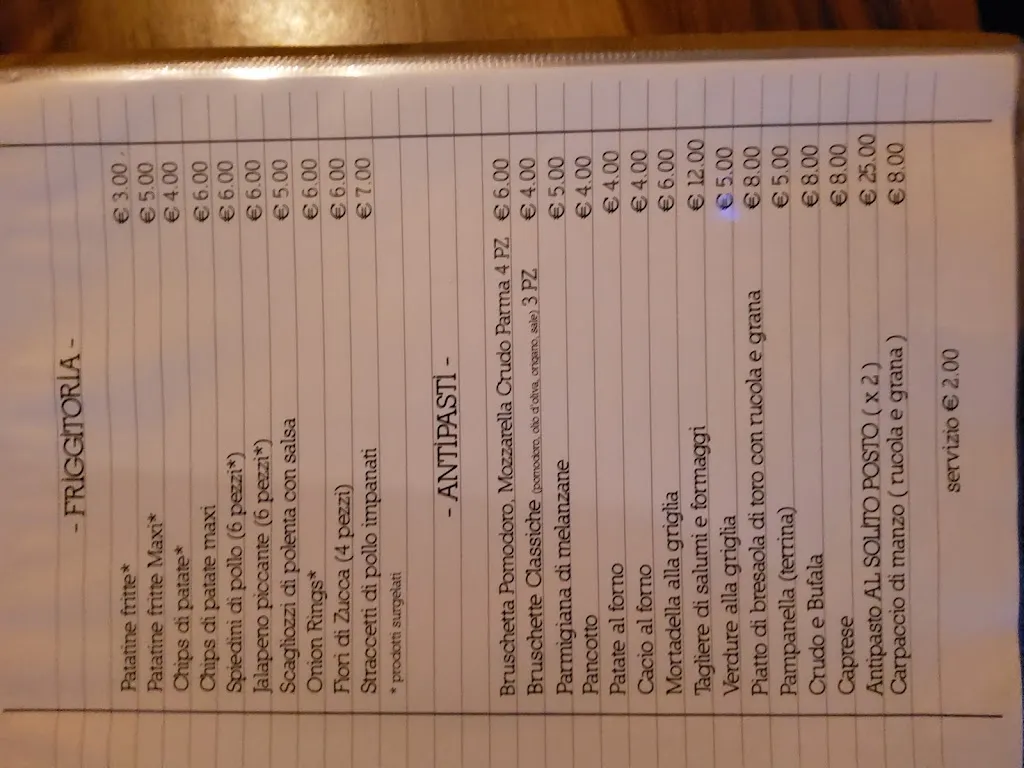 - FRIGGITORIA -
Patatine fritte* € 3.00
Patatine fritte Maxi* € 5.00
Chips di patate* € 4.00
Chips di patate maxi € 6.00
Spiedini di pollo (6 pezzi*) € 6.00
Jalapeno piccante (6 pezzi*) € 6.00
Scagliozzi di polenta con salsa € 5.00
Onion Rings* € 6.00
Fiori di Zucca (4 pezzi) € 6.00
Straccetti di pollo impanati € 7.00
* prodotti surgelati
- ANTIPASTI -
Bruschetta Pomodoro, Mozzarella Crudo Parma 4 PZ € 6.00
Bruschette Classiche (pomodoro, olio d'oliva, origano, sale) 3 PZ € 4.00
Parmigiana di melanzane € 5.00
Pancotto € 4.00
Patate al forno € 4.00
Cacio al forno € 4.00
Mortadella alla griglia € 6.00
Tagliere di salumi e formaggi € 12.00
Verdure alla griglia € 5.00
Piatto di bresaola di toro con rucola e grana € 8.00
Pampanella (terrina) € 5.00
Crudo e Bufala € 8.00
Caprese € 8.00
Antipasto AL SOLITO POSTO ( x 2 ) € 25.00
Carpaccio di manzo ( rucola e grana ) € 8.00
servizio € 2.00